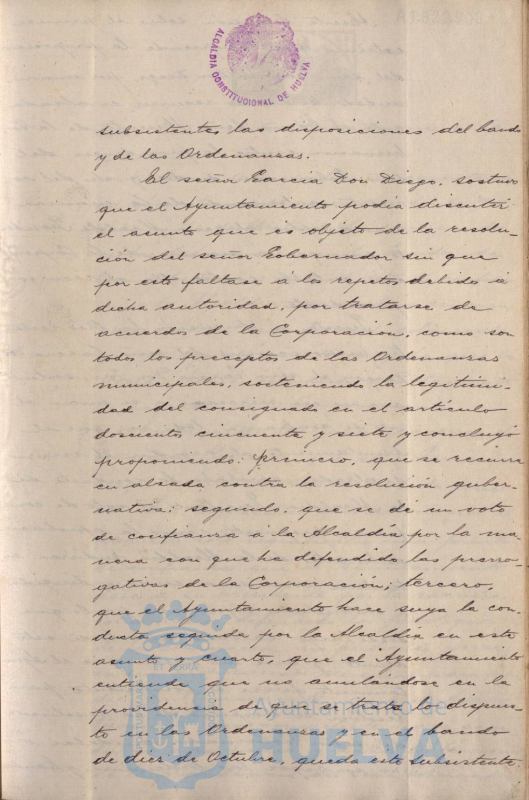 ALCALDIA CONSTITUCIONAL DE HUELVA
subsistentes las disposiciones del bando
y de las Ordenanzas.
El señor García Don Diego, sostuvo
que el Ayuntamiento podia discutir
el asunto que es objeto de la resolu-
ción del señor Gobernador sin que
por esto faltase á los repetos debidos á
dicha autoridad, por tratarse de
acuerdos de la Corporación, como son
todos los preceptos de las Ordenanzas
municipales, sosteniendo la legitimi-
dad del consignado en el artículo
doscientos cincuenta y siete y concluyó
proponiendo: primero, que se recurra
en alzada contra la resolución guber-
nativa; segundo, que se dé un voto
de confianza á la Alcaldía por la ma-
nera con que ha defendido las prerro-
gativas de la Corporación; tercero,
que el Ayuntamiento hace suya la con-
ducta seguida por la Alcaldía en este
asunto y cuarto, que el Ayuntamiento
entiende que no anulándose en la
providencia de que se trata lo dispues-
to en las Ordenanzas y en el bando
de diez de Octubre, queda este subsistente.
Ayuntamiento de
HUELVA